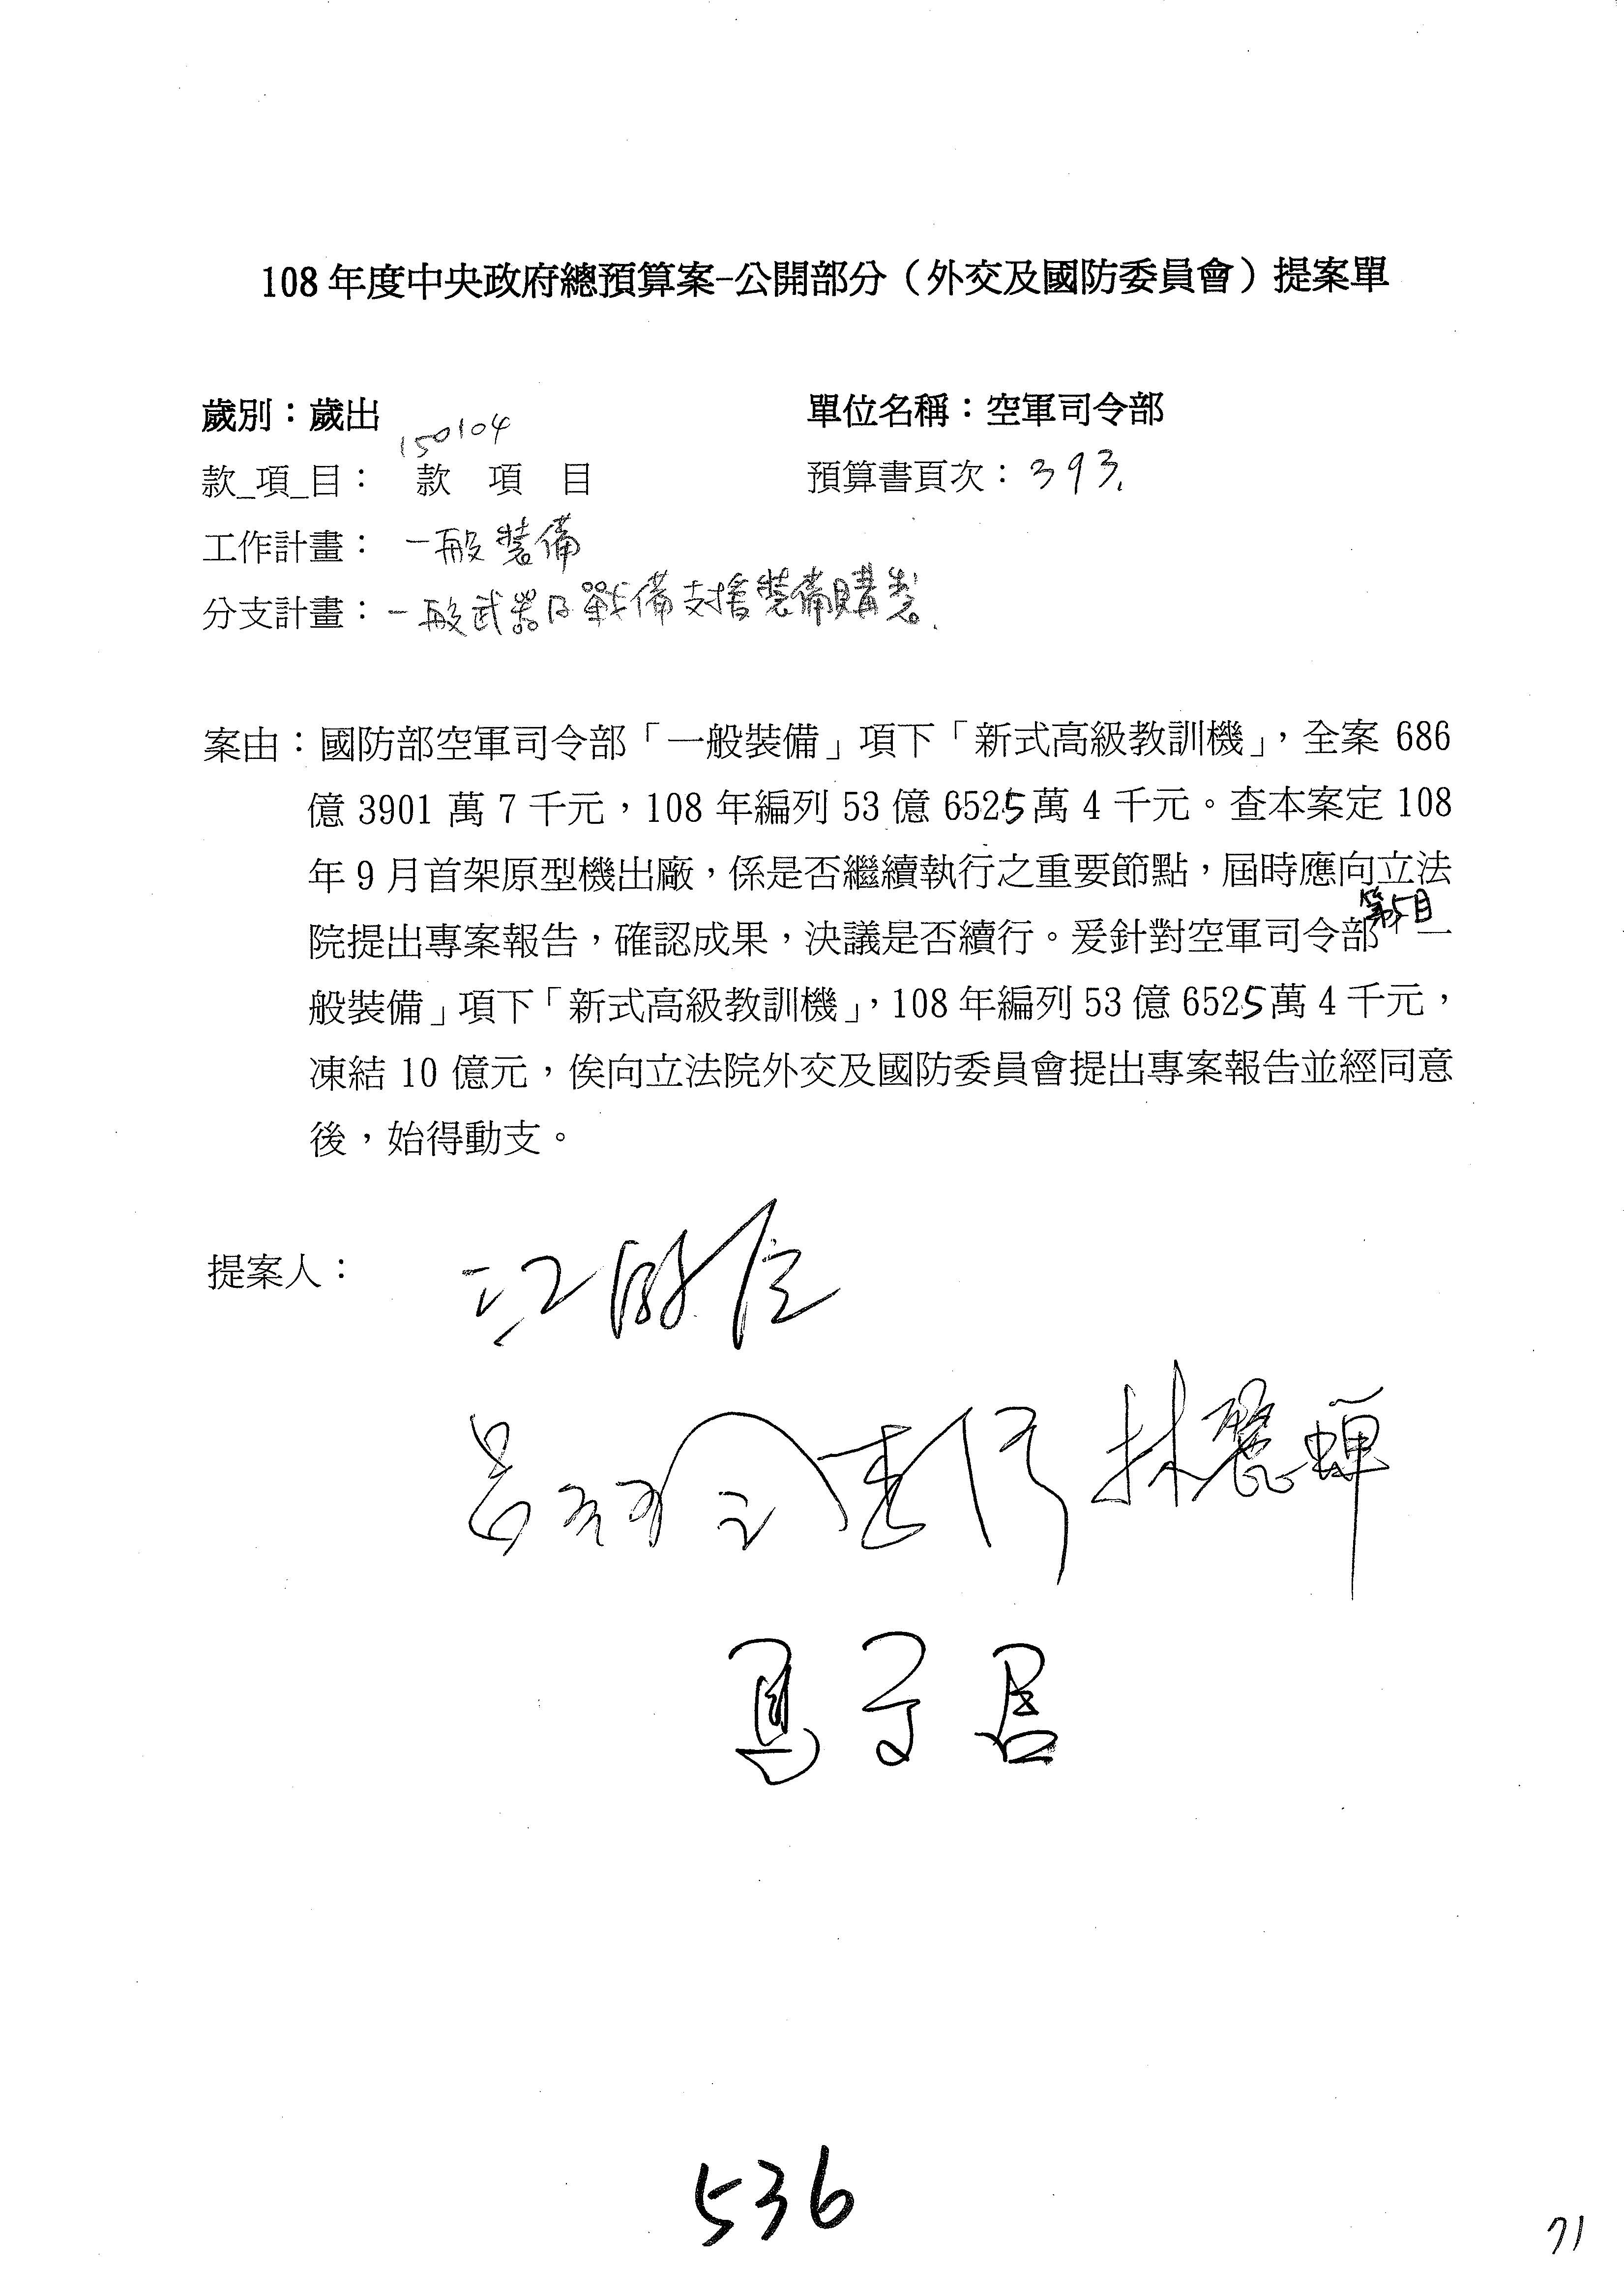 108年度中央政府總預算案-公開部分（外交及國防委員會）提案單
歲別：歲出
單位名稱：空軍司令部
150104
款_項_目： 款 項 目
預算書頁次：393.
工作計畫：一般裝備
分支計畫：一般武器及戰備支援裝備購製.
案由：國防部空軍司令部「一般裝備」項下「新式高級教訓機」，全案 686
億 3901 萬 7 千元，108 年編列 53 億 6525 萬 4 千元。查本案定 108
年 9 月首架原型機出廠，係是否繼續執行之重要節點，屆時應向立法
第5目
院提出專案報告，確認成果，決議是否續行。爰針對空軍司令部「一
般裝備」項下「新式高級教訓機」，108 年編列 53 億 6525 萬 4 千元，
凍結 10 億元，俟向立法院外交及國防委員會提出專案報告並經同意
後，始得動支。
提案人：
江啟臣
林麗蟬
馬文君
536
71